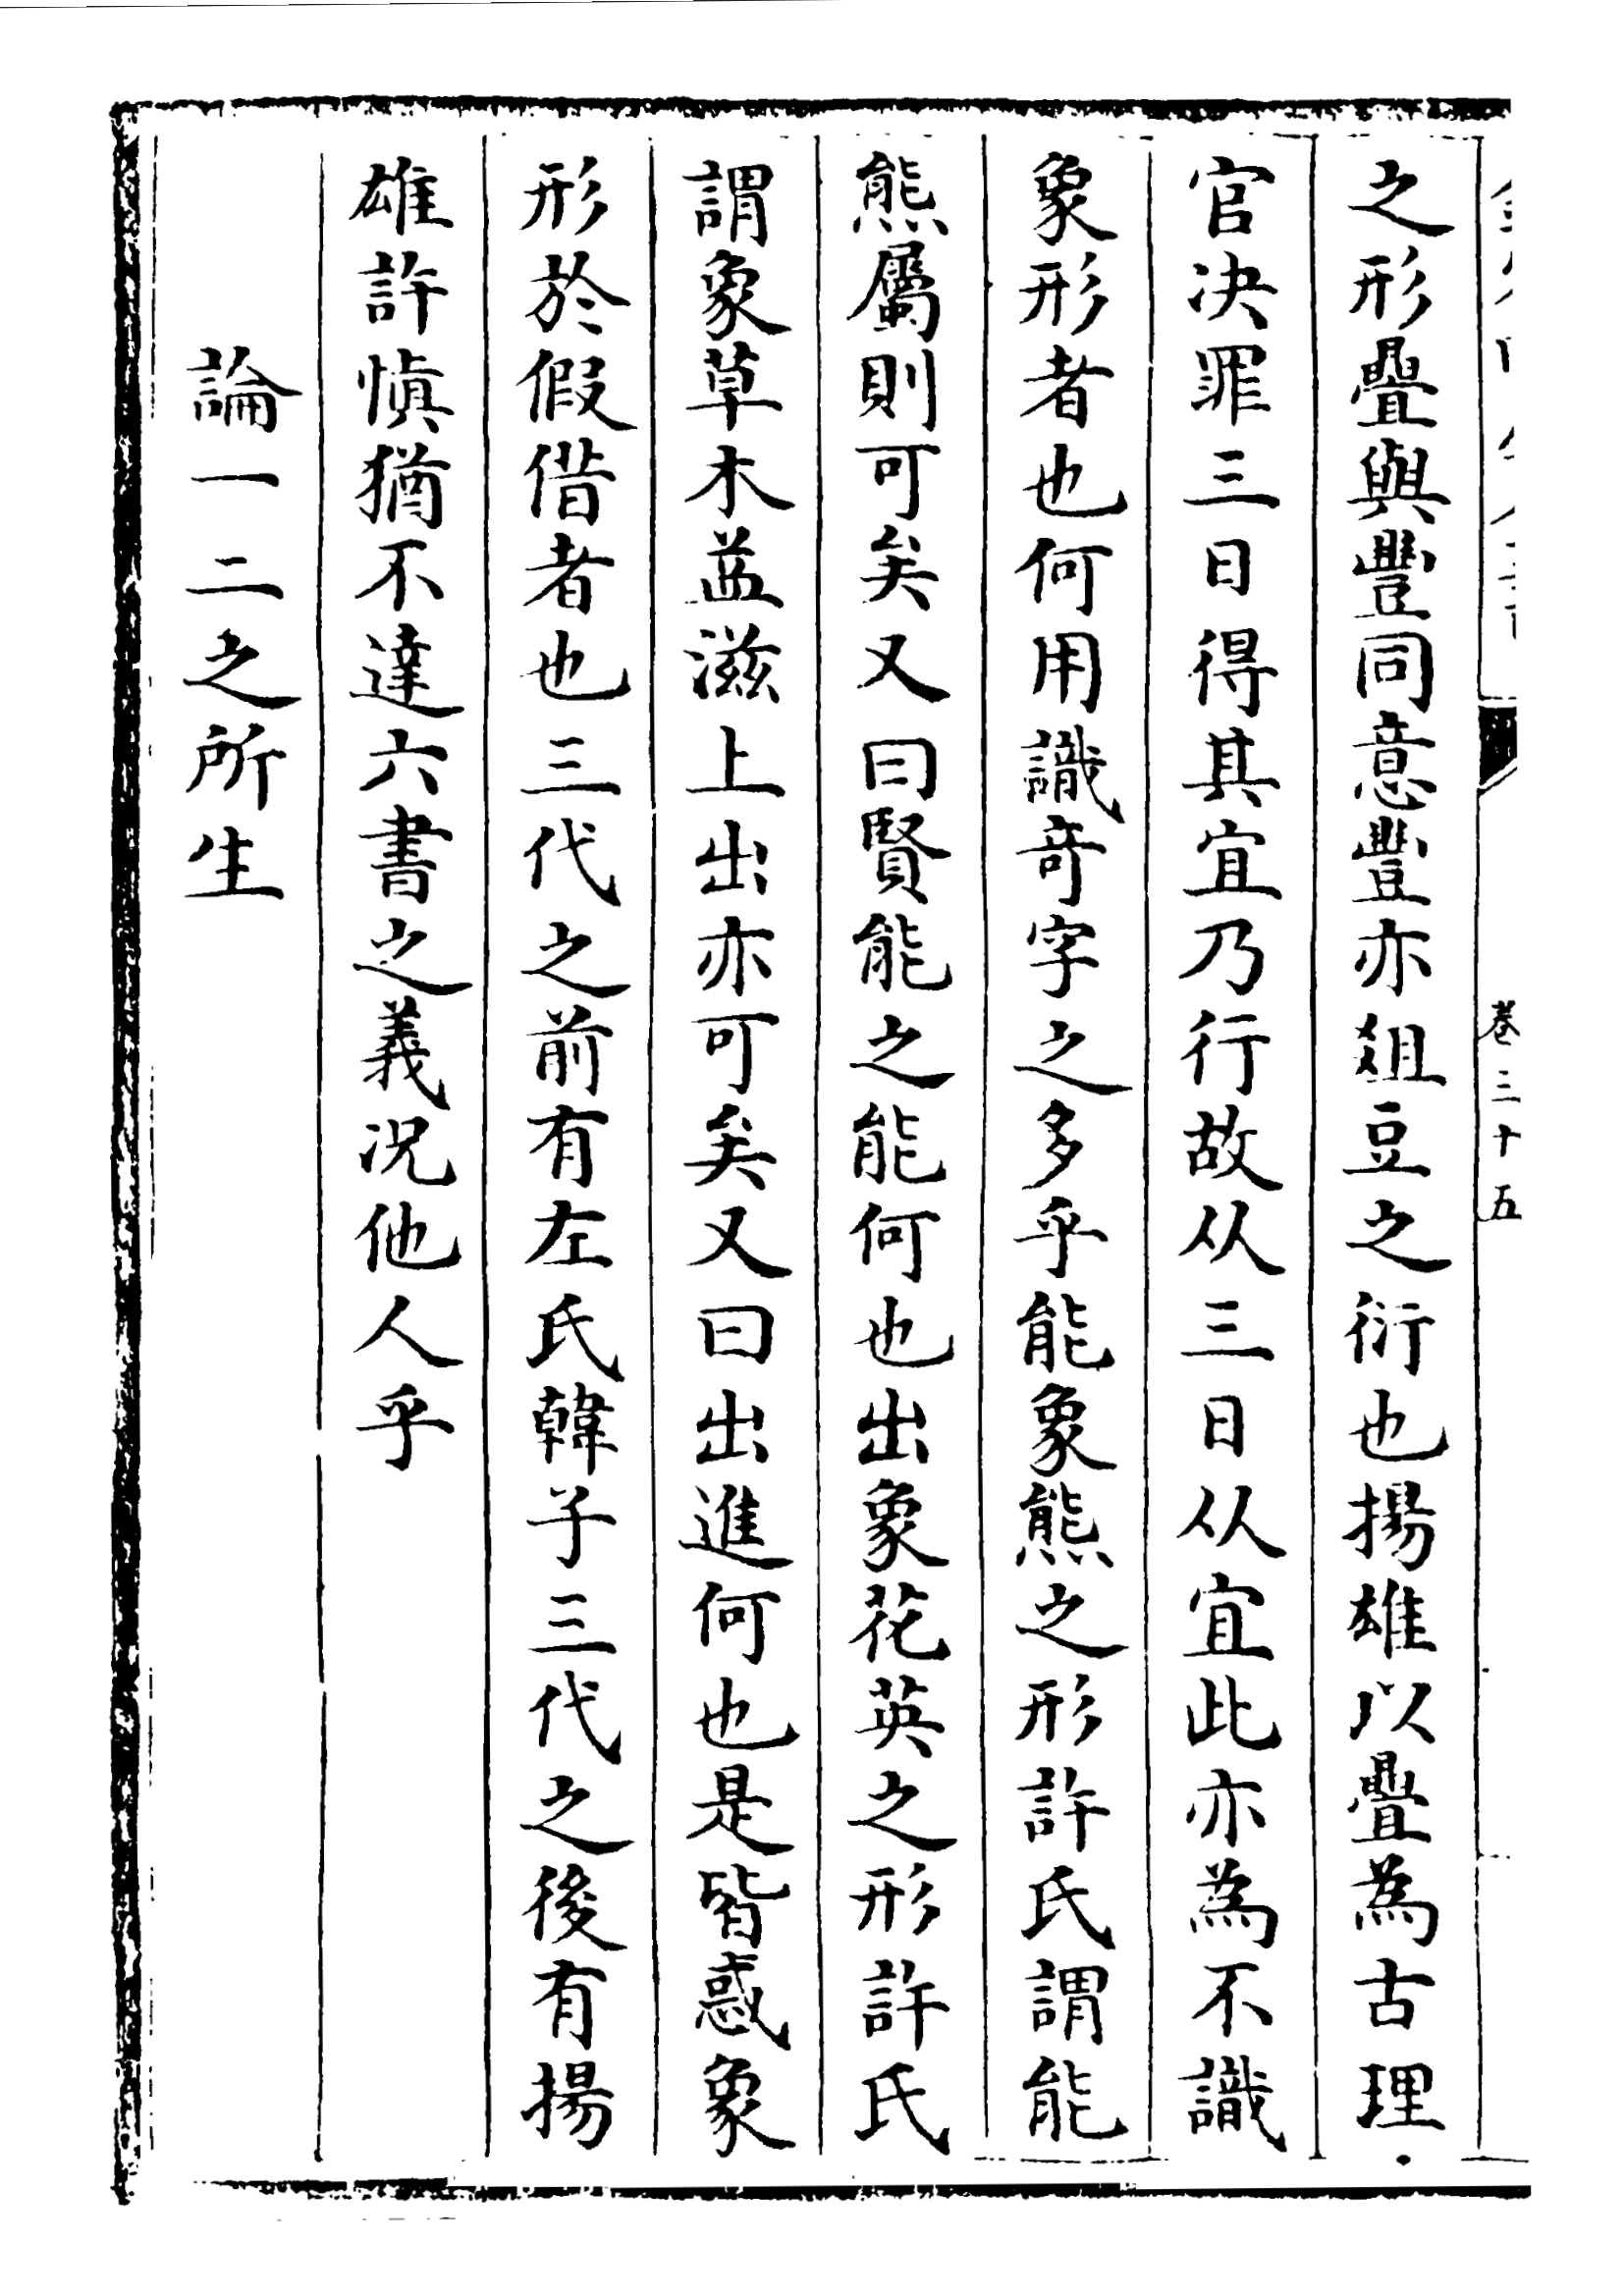 之形疊與豐同意豐亦俎豆之衍也揚雄以疊為古理
官决罪三日得其宜乃行故从三日从宜此亦為不識
象形者也何用識竒字之多乎能象熊之形許氏謂能
熊屬則可矣又曰賢能之能何也出象花英之形許氏
謂象草木益滋上出亦可矣又曰出進何也是皆惑象
形於假借者也三代之前有左氏韓子三代之後有揚
雄許慎猶不達六書之義况他人乎
論一二之所生
卷三十五